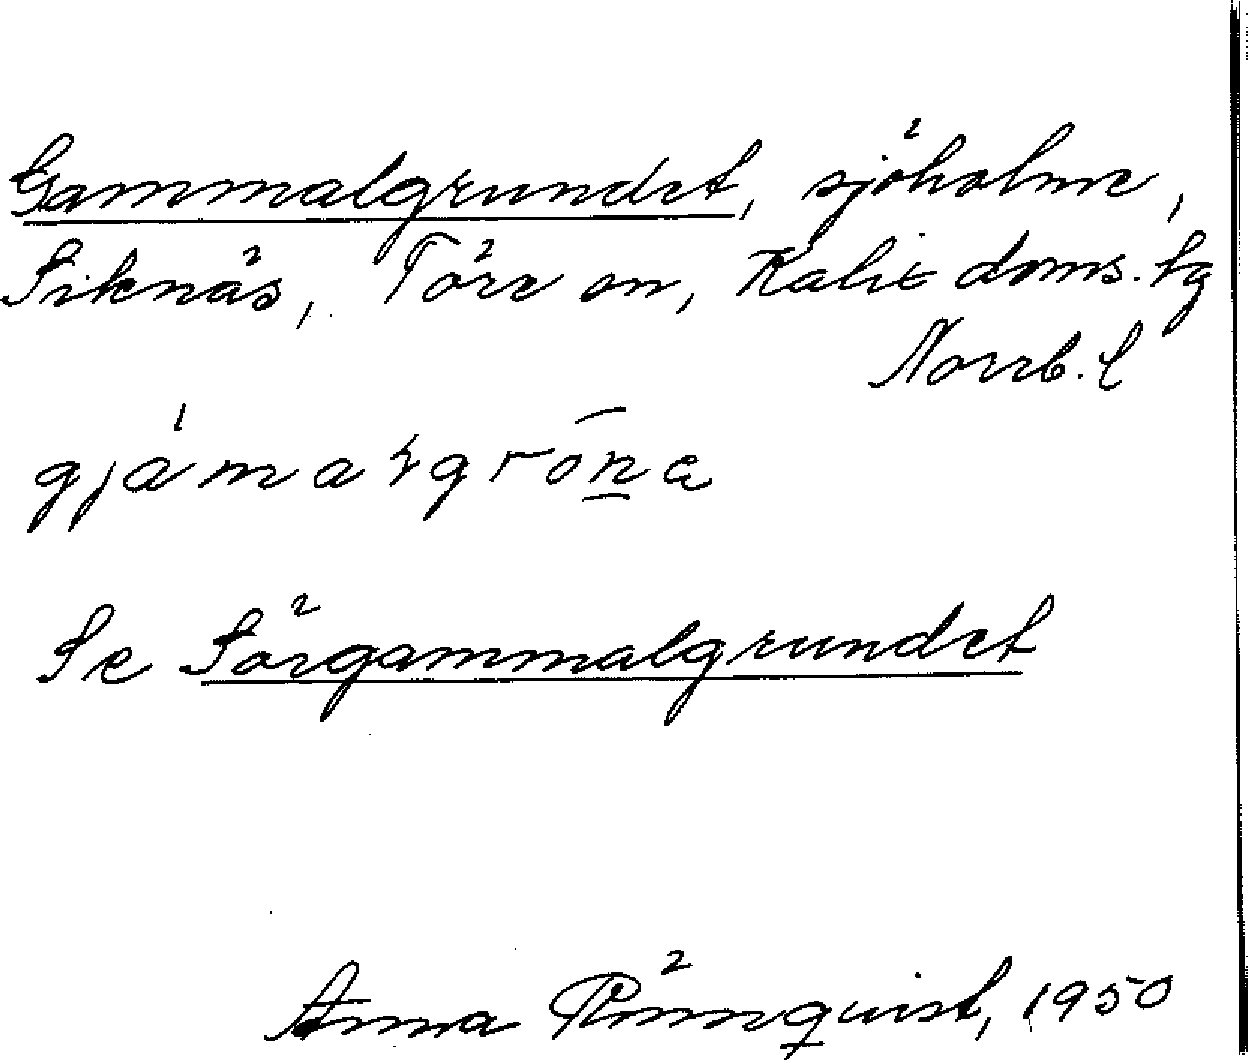 Gammalgrundet, sjöholme,
Siknäs, Töre sn, Kalix doms. tg
Norrb. l
gjámalgrōn̲a
Se Sörgammalgrundet
Anna Rönnquist, 1950